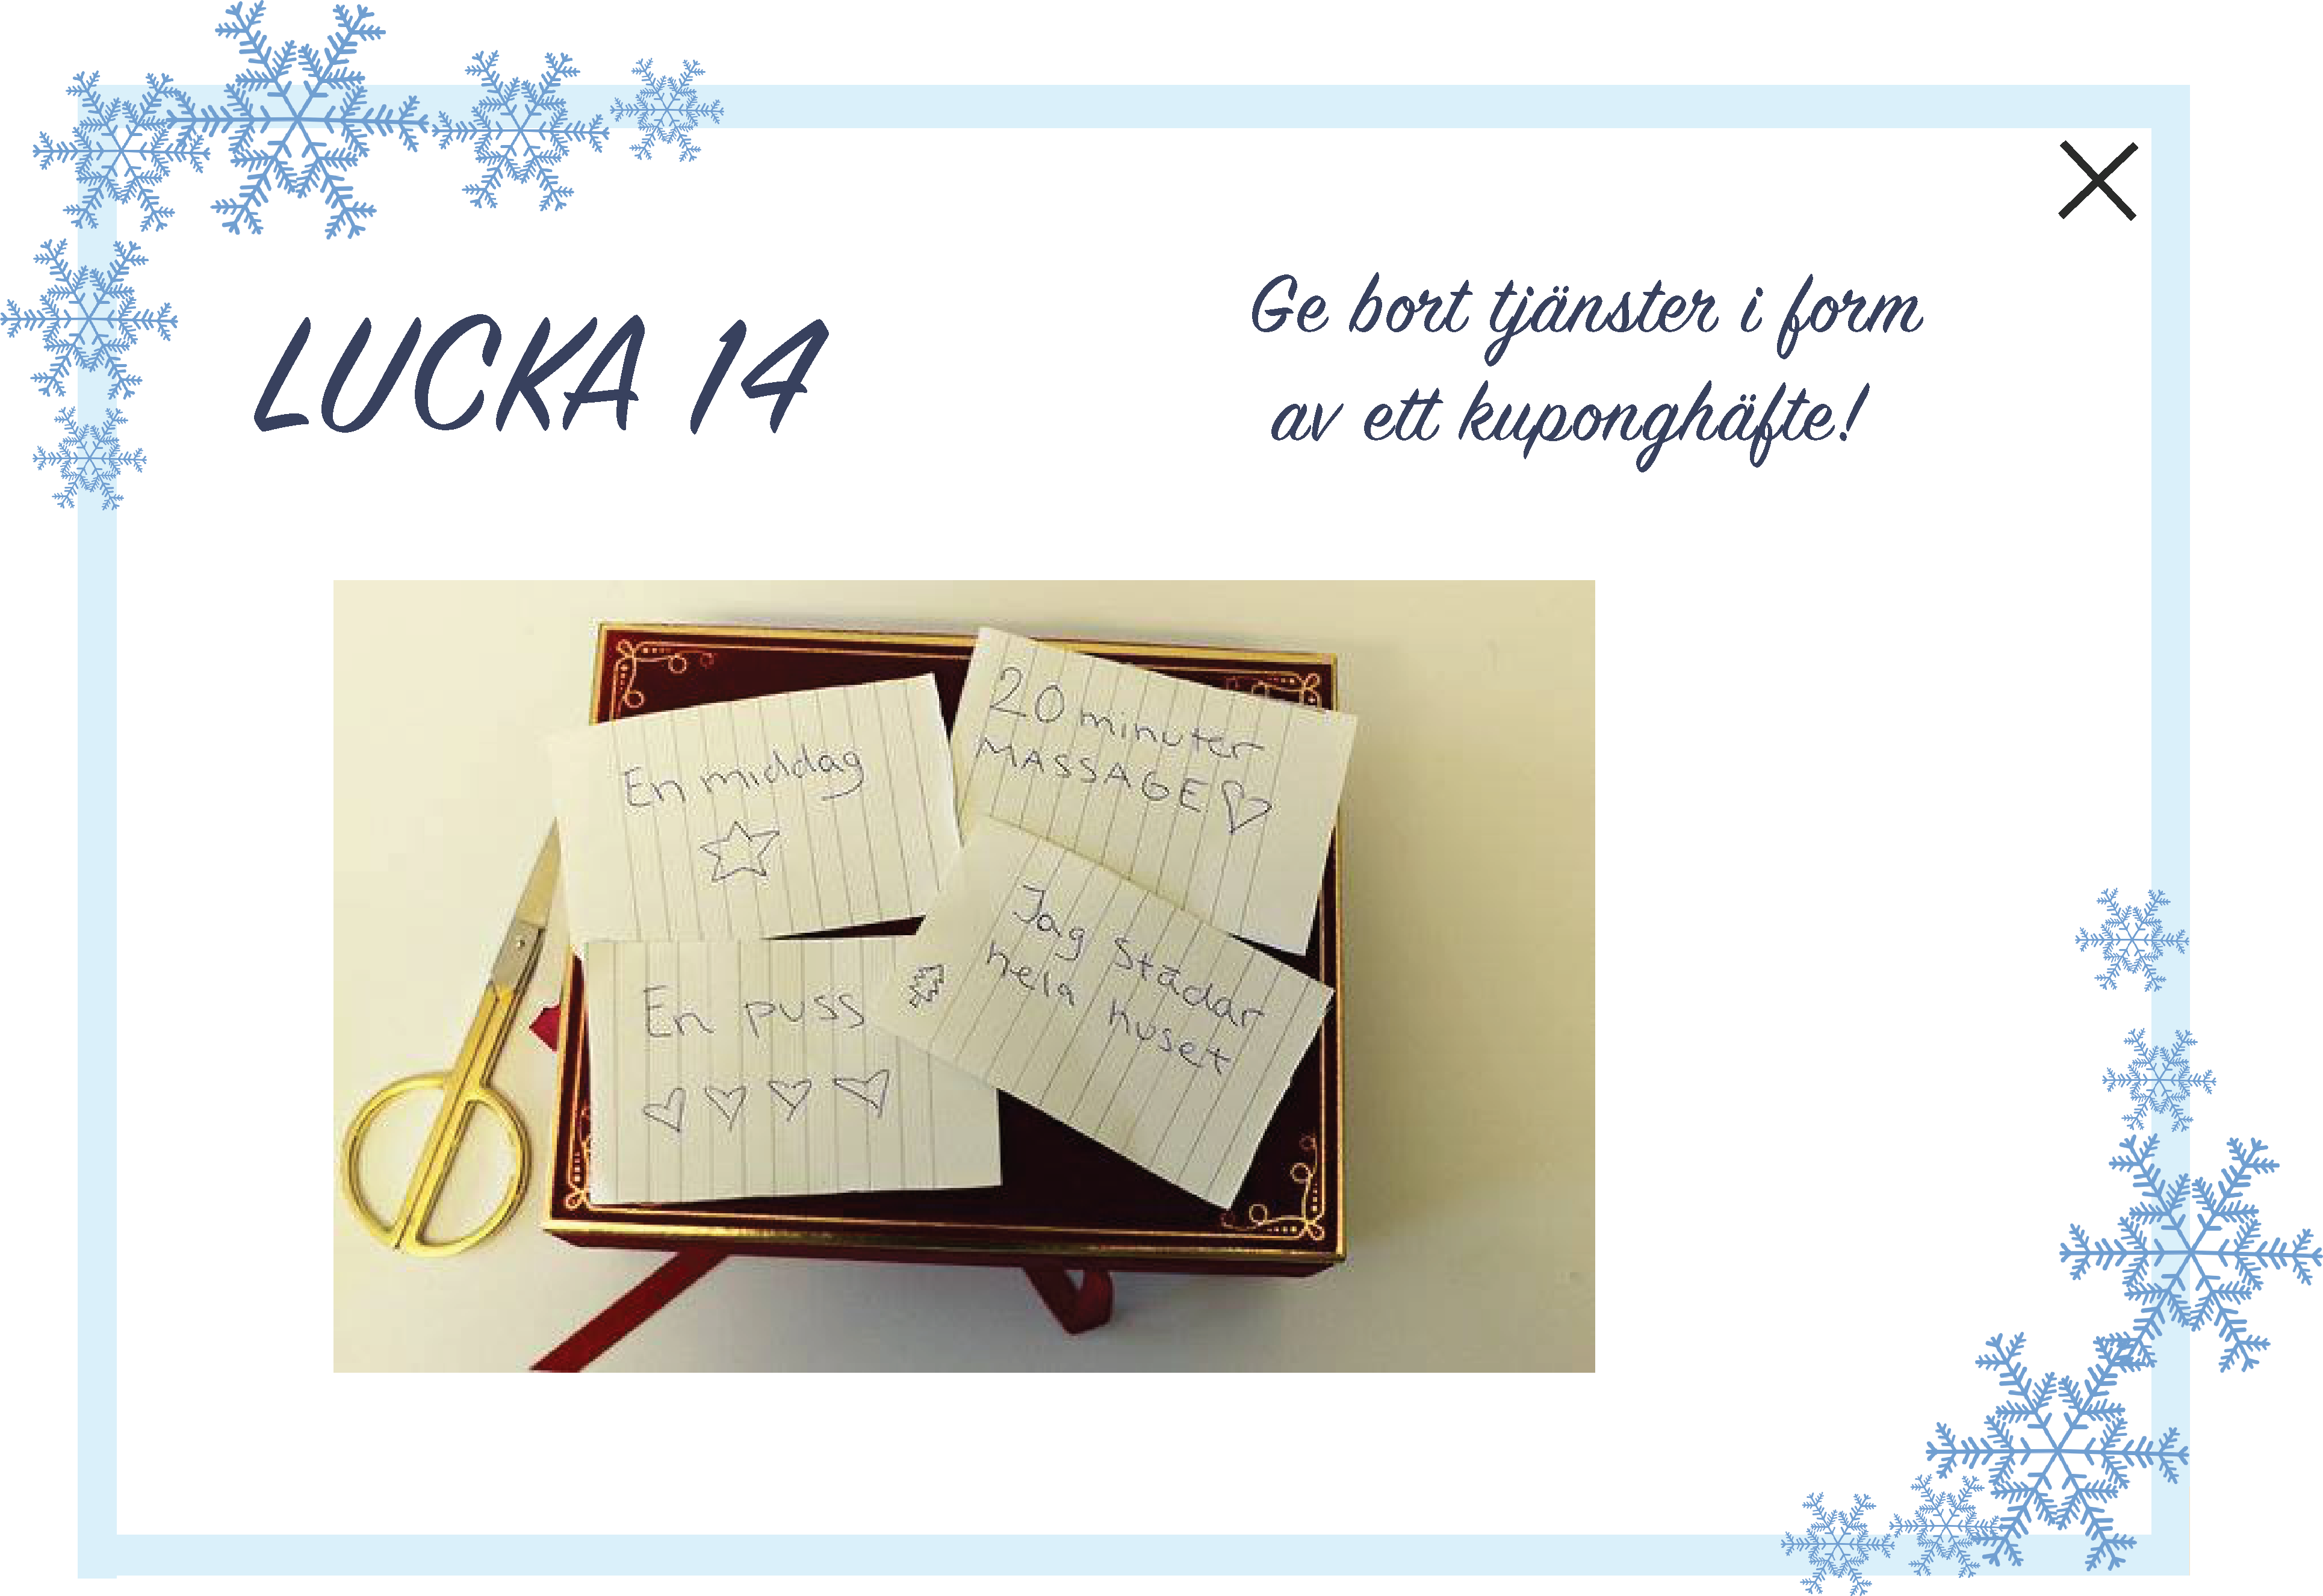 LUCKA 14
Ge bort tjänster i form
av ett kuponghäfte!
En middag
20 minuter
MASSAGE
En puss
Jag städar
hela huset